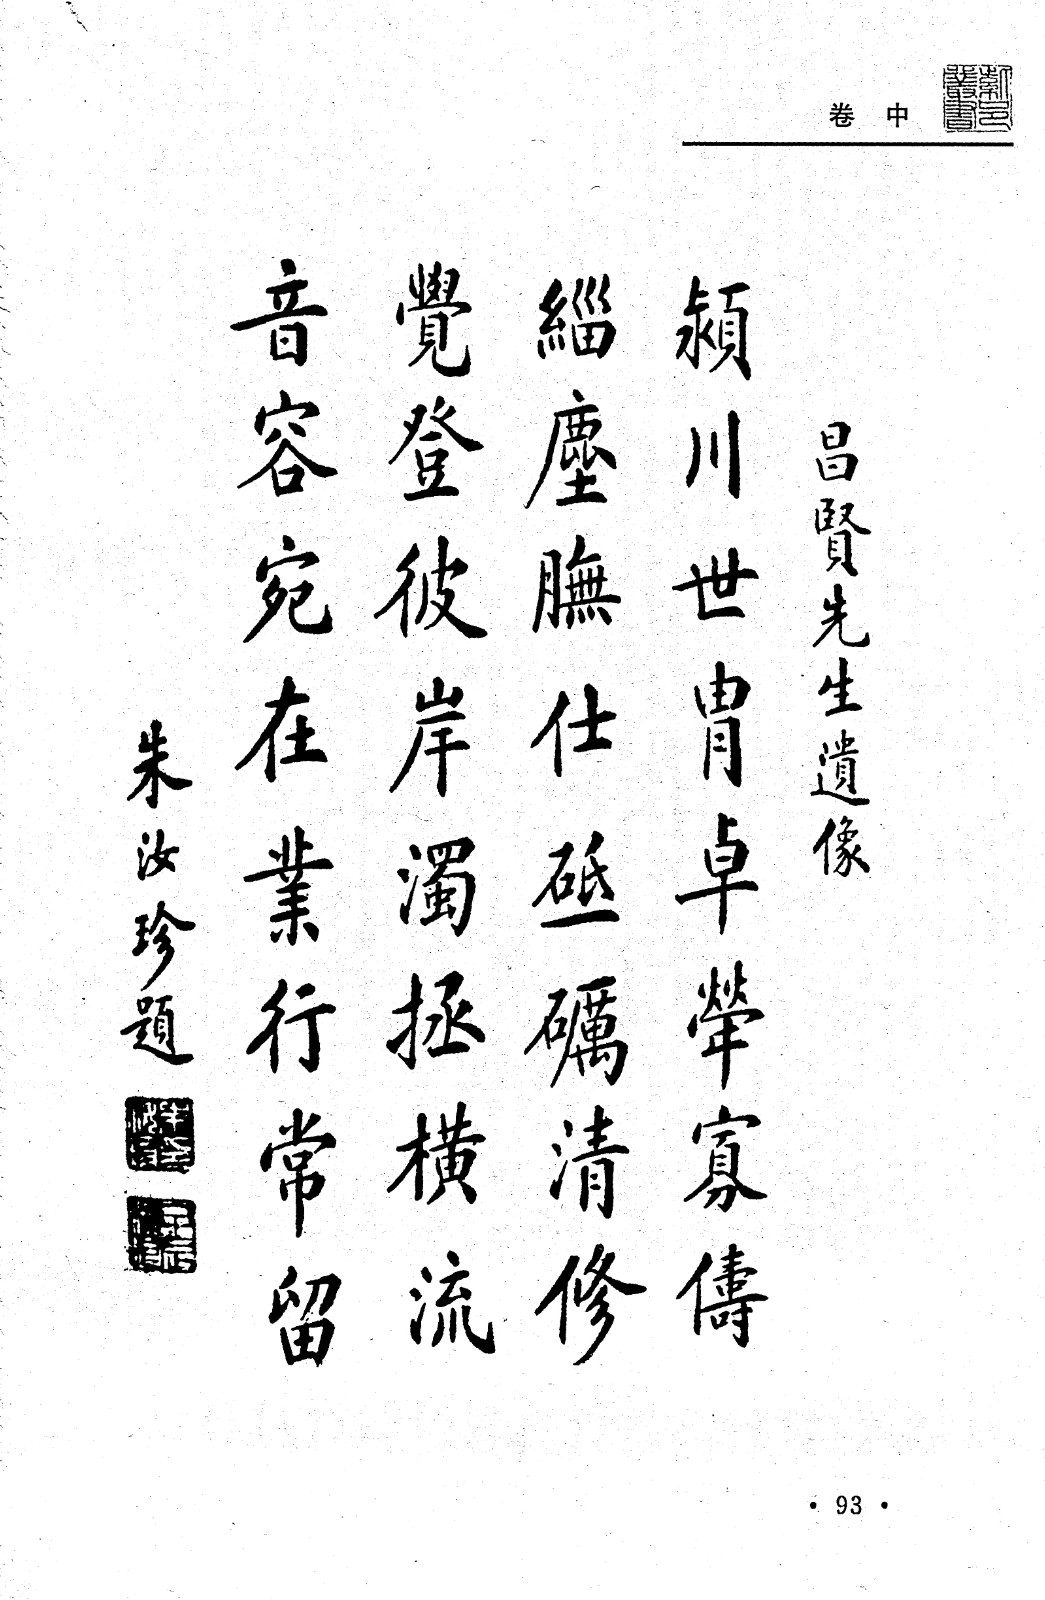 卷中
昌賢先生遺像
潁川世冑卓犖寡儔
緇塵膴仕砥礪清修
覺登彼岸濁拯橫流
音容宛在業行常留
朱汝珍題
· 93 ·